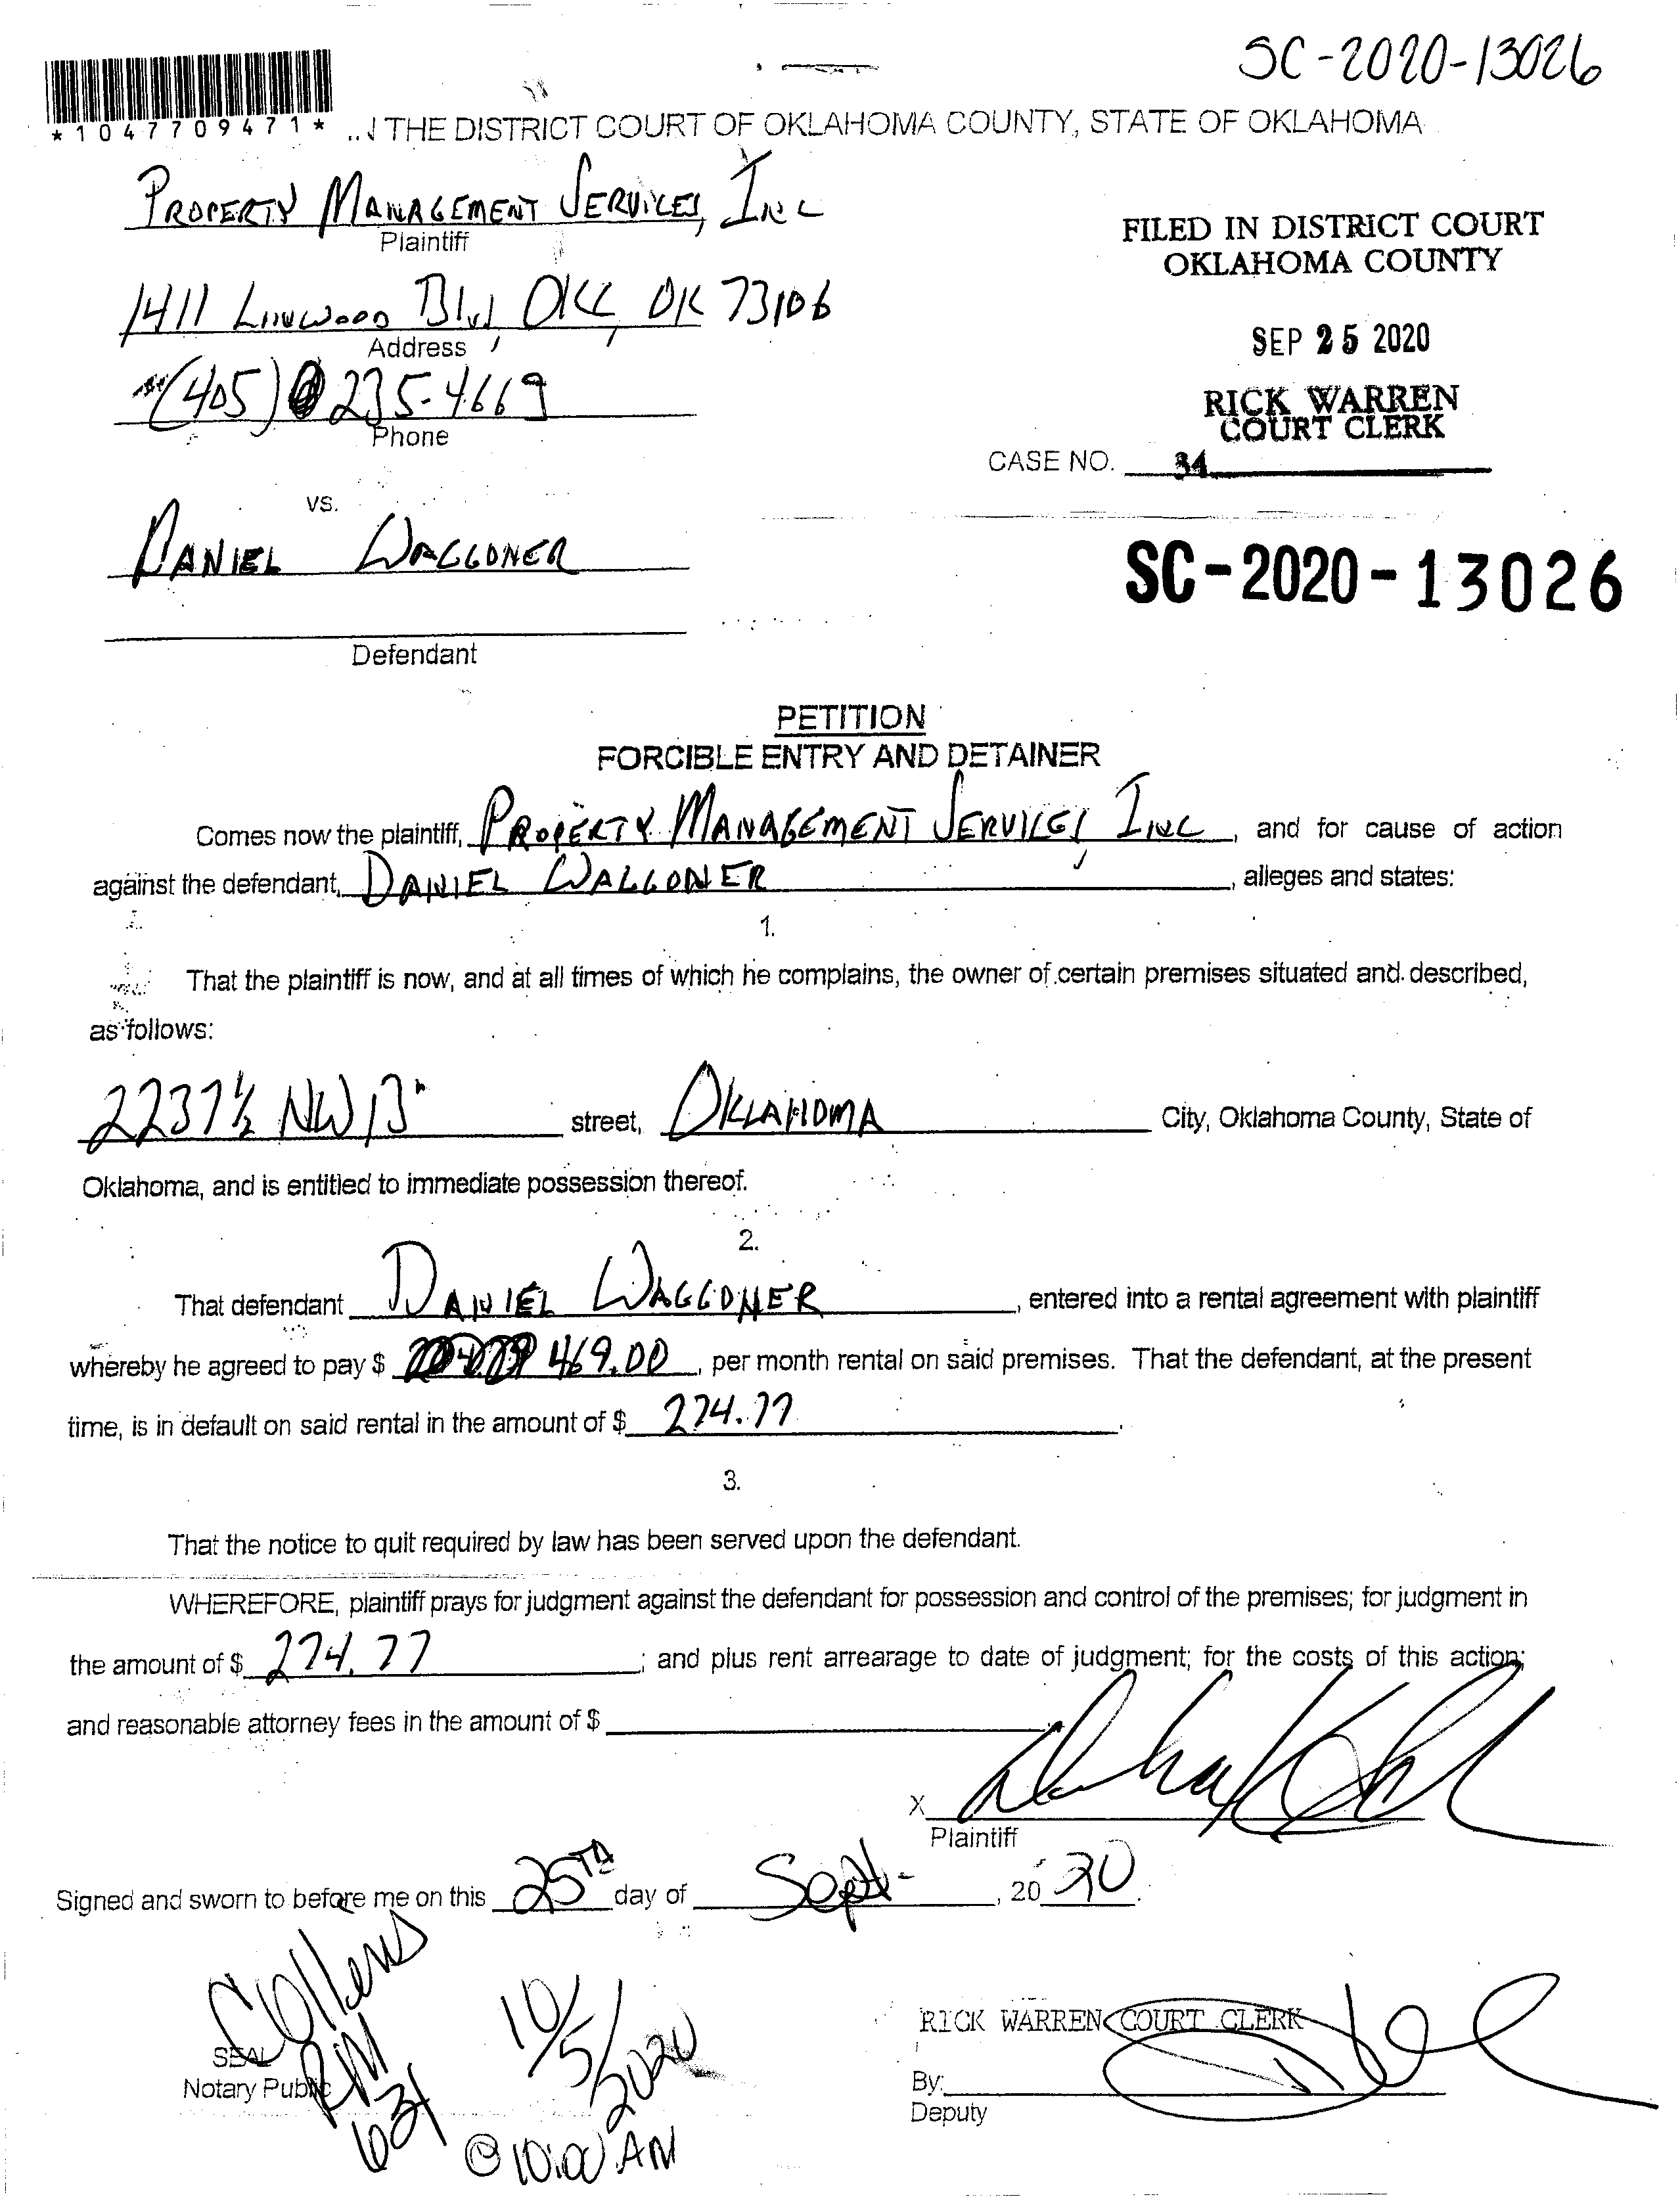 SC-2020-13026
*1047709471*
THE DISTRICT COURT OF OKLAHOMA COUNTY, STATE OF OKLAHOMA
PROPERTY MANAGEMENT SERVICES, INC
Plaintiff
1411 LINWOOD Blvd, OKC, OK 73106
Address
(405) 235-4669
Phone
FILED IN DISTRICT COURT
OKLAHOMA COUNTY
SEP 25 2020
RICK WARREN
COURT CLERK
CASE NO. 34
vs.
DANIEL WAGGONER
SC-2020-13026
Defendant
PETITION
FORCIBLE ENTRY AND DETAINER
Comes now the plaintiff, PROPERTY MANAGEMENT SERVICES, INC, and for cause of action
against the defendant, DANIEL WAGGONER, alleges and states:
1.
That the plaintiff is now, and at all times of which he complains, the owner of certain premises situated and described,
as follows:
2237 ½ NW 13" street, OKLAHOMA City, Oklahoma County, State of
Oklahoma, and is entitled to immediate possession thereof.
2.
That defendant DANIEL WAGGONER, entered into a rental agreement with plaintiff
whereby he agreed to pay $ 469.00, per month rental on said premises. That the defendant, at the present
time, is in default on said rental in the amount of $ 274.77.
3.
That the notice to quit required by law has been served upon the defendant.
WHEREFORE, plaintiff prays for judgment against the defendant for possession and control of the premises; for judgment in
the amount of $ 274.77; and plus rent arrearage to date of judgment; for the costs of this action;
and reasonable attorney fees in the amount of $
X
Plaintiff
Signed and sworn to before me on this 25TH day of Sept-, 2020.
Collins
RM
631
SEAL
Notary Public
10/5/2020
@ 10:00 AM
RICK WARREN COURT CLERK
By:
Deputy